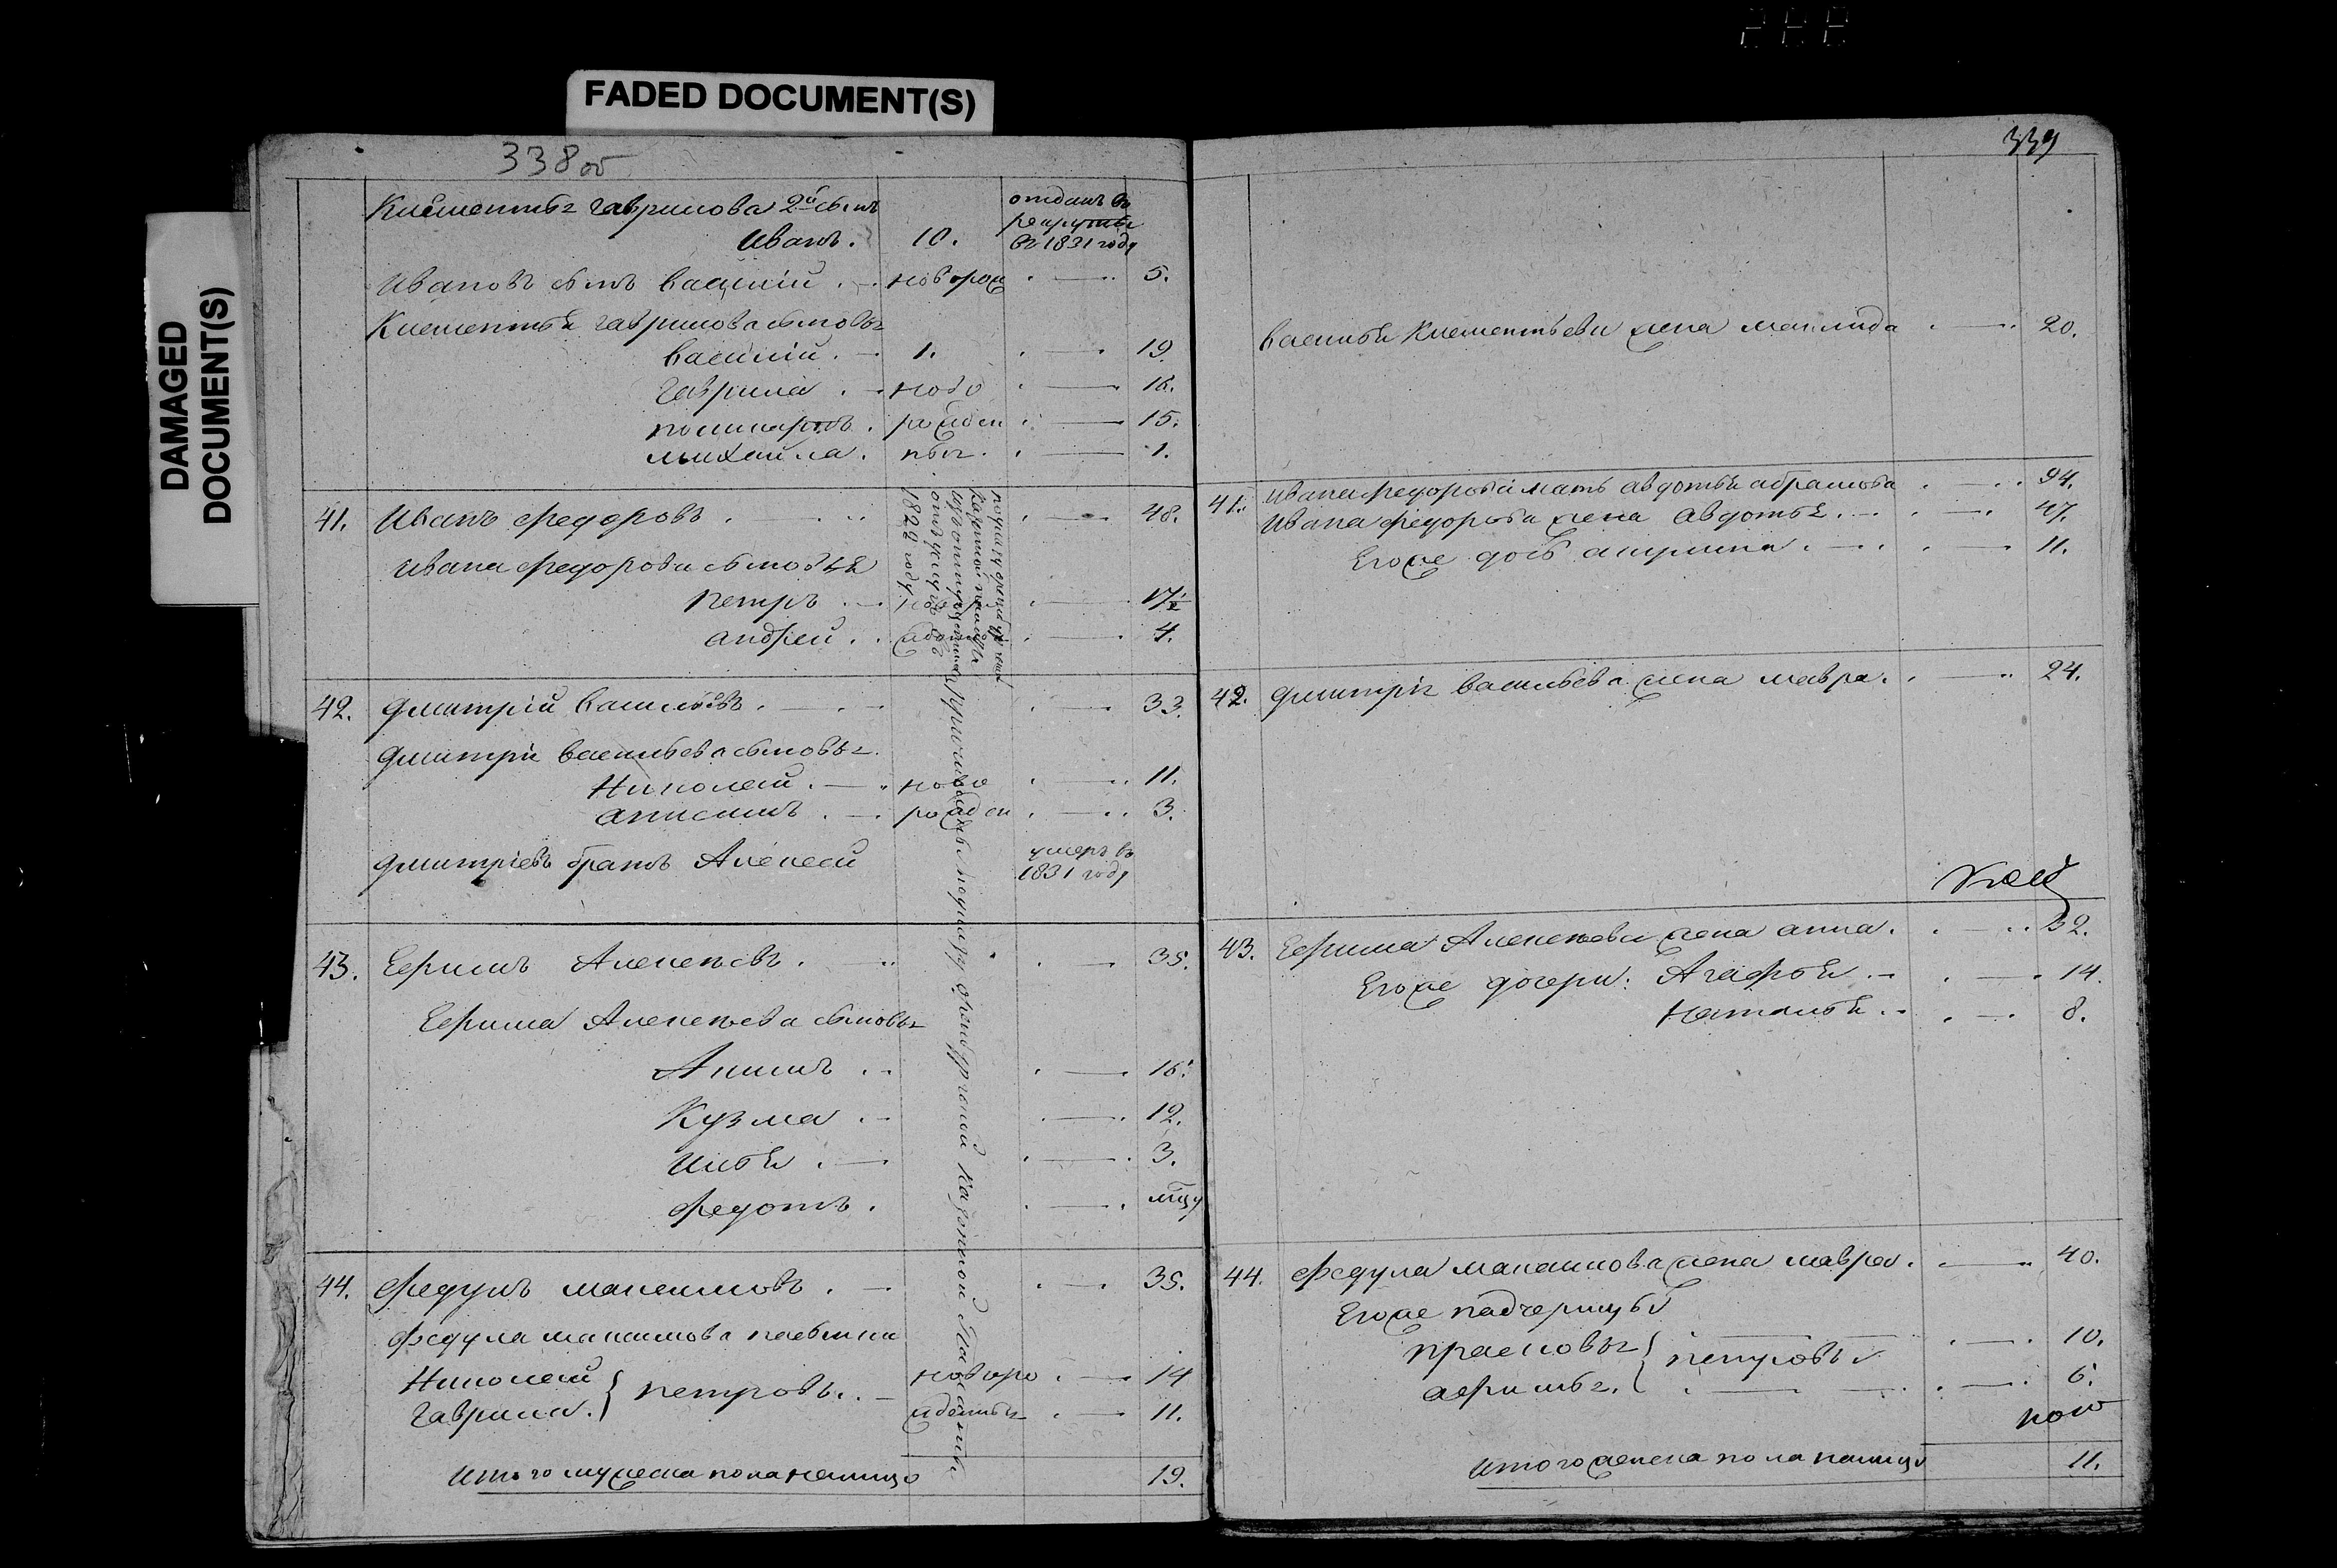 FADED DOCUMENT(S)
DAMAGED
DOCUMENT(S)
338 об
Клементья гаврилова 2й сынъ
Иванъ. 10. отданъ въ
рекруты
въ 1831 году
Ивановъ сынъ василій новорож 5.
Клементья гаврилова сыновья
василій. 1. 19.
гаврила ново 16.
поликарпъ. рожден 15.
михайла. ныя. 1.
41. Иванъ федоровъ 48.
Ивана федорова сыновья
петръ 17½
андрей 4.
1822 году
42. дмитрій васильевъ 33.
дмитрія васильева сыновья
Николай ново 11.
анисимъ рожден 3.
дмитріевъ братъ Алексей умеръ въ
1831 году
43. Ефимъ Алексеевъ 35.
Ефима Алексеева сыновья
Акимъ 16.
Кузма 12.
Илья 3.
федотъ.
44. федулъ максимовъ 35.
федула максимова пасынки
Николай новоро 14
гаврила. } петровы. жденныя 11.
Итого мужеска пола налицо 19.
339
василья Клементьева жена 20.
41. Ивана федорова мать авдотья абрамова 94.
Ивана федорова жена авдотья 47.
Егоже дочь акулина 11.
42. дмитрія васильева жена мавра. 24.
43. Ефима Алексеева жена анна. 32.
Егоже дочери: Агафья 14.
Наталья 8.
44. федула максимова жена мавра. 40.
Егоже падчерицы
прасковья } петровы 10.
6.
Итого женска пола налицо 11.